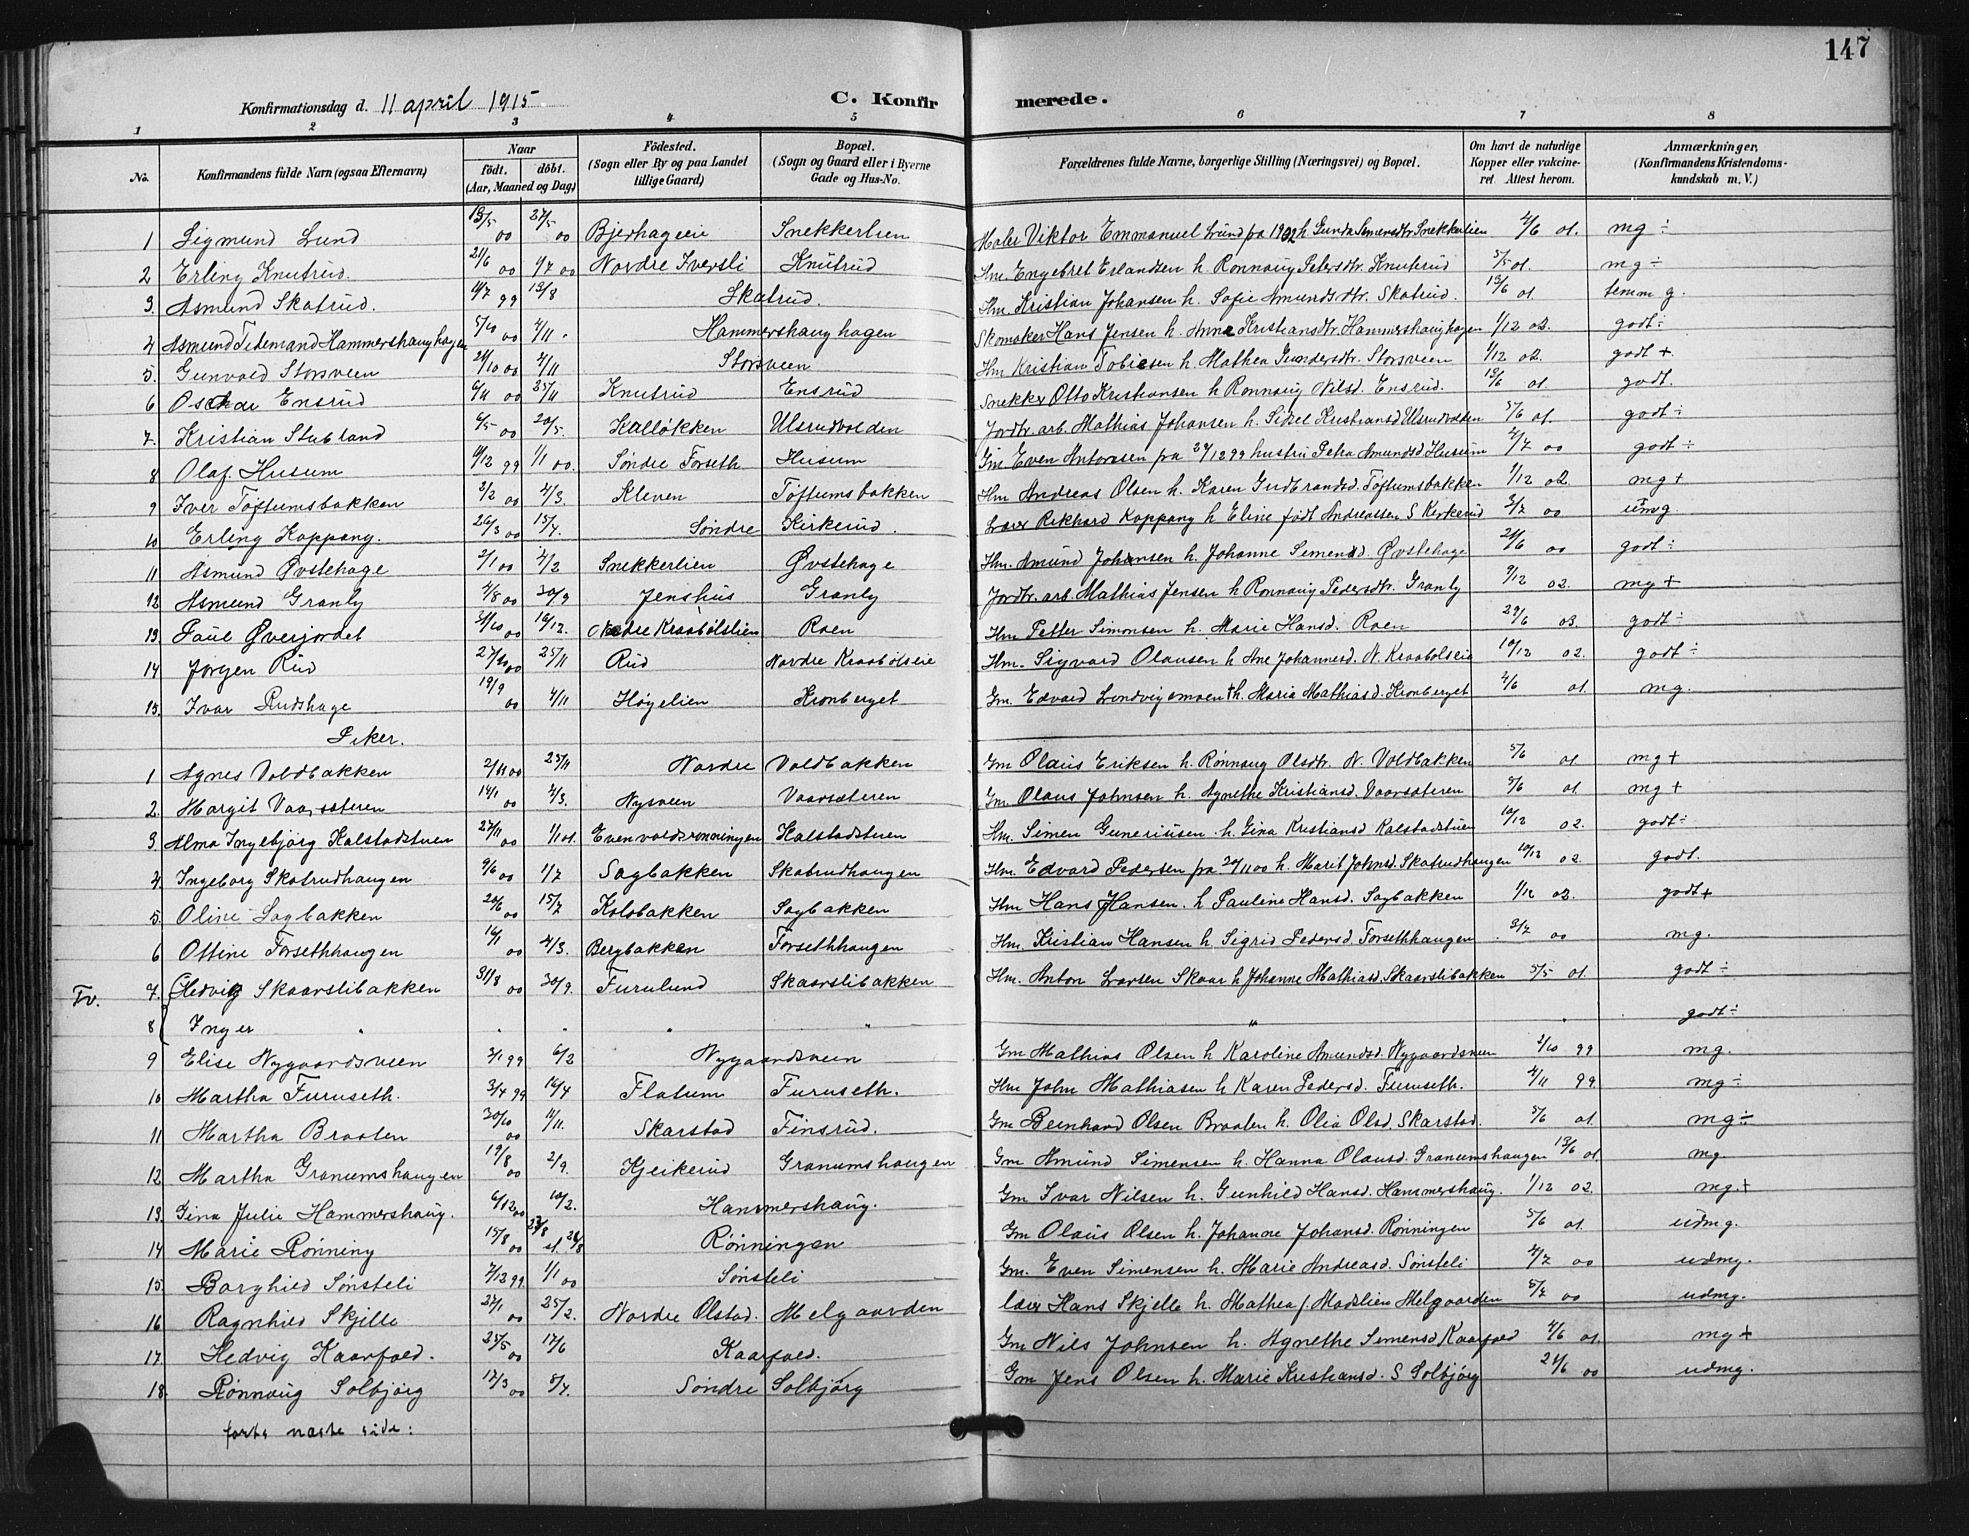 147
Konfirmationsdag d. 11 april 1915 C. Konfirmerede.
1 2 3 4 5 6 7 8
No. Konfirmandens fulde Navn (ogsaa Efternavn) Naar födt. döbt. (Aar, Maaned og Dag) Födested. (Sogn eller By og paa Landet tillige Gaard) Bopæl. (Sogn og Gaard eller i Byerne Gade og Hus-No. Forældrenes fulde Navne, borgerlige Stilling (Næringsvei) og Bopæl. Om havt de naturlige Kopper eller vakcineret. Attest herom. Anmærkninger, (Konfirmandens Kristendomskundskab m. V.)
1 Sigmund Lund 13/5 00 27/5 00 Bjerhageeie Snekkerlien Maler Viktor Emmanuel Lund pa 1902 h Gunda Simensdtr Snekkerlien 4/6 01. mg ÷
2 Erling Knutrud. 21/6 00 1/7 00 Nordre Iversli Knutrud Hm. Engebret Erlandsen h. Rønnaug Petersdtr. Knutrud 5/5 01. mg ÷
3. Asmund Skatrud. 11/7 99 13/8 Skatrud. Hm. Kristian Johansen h. Sofie Amundsdtr. Skatrud. 13/6 01. temm g.
4 Asmund Tidemand Hammershaughagen 5/10 00 4/11 Hammershaughagen Skomaker Hans Jensen h. Anne Kristiansdtr. Hammershaughagen 1/12 02. godt ÷
5. Gunvald Storsveen 21/10 00 4/11 Storsveen Hm Kristian Tobiesen h. Mathea Gundersdtr. Storsveen 1/12 02. godt +.
6 Oskar Ensrud 6/11 00 25/11 Knutrud Ensrud Snekker Otto Kristiansen h Rønnaug Nilsd. Ensrud. 13/6 01. godt.
7. Kristian Stubland 6/5 00 20/5. Kalløkken Ulsrudvolden Jordbr. arb. Mathias Johansen h. Sidsel Kristiansd Ulsrudvolden 5/6 01. godt ÷
8 Olaf Husum 11/12 99 1/1 00. Søndre Forseth Husum Gm Even Antonsen pa 27/12 99 hustru Petra Amundsd Husum 4/7 00 godt ÷
9 Iver Toftumsbakken 2/2 00 4/3. Kleven Toftumsbakken Hm Andreas Olsen h. Karen Gudbrandsd. Toftumsbakken 1/12 02. mg +
10 Erling Koppang. 26/3 00 15/4. Søndre Kirkerud. Lærer Rikhard Koppang h Eline født Andreassen S Kirkerud 3/7 00 umg
11 Asmund Øvstehage 2/1 00 4/2 Snekkerlien Øvstehage Hm. Amund Johansen h. Johanne Simensd. Øvstehage 21/6 00 godt ÷
12 Asmund Granly 4/8 00 30/9 Jenshus Granly Jordbr. arb. Mathias Jensen h Rønnaug Pedersdtr. Granly 9/12 02. mg +
13. Paul Øverjordet 31/10 00 16/12. Nedre Kraabølslien Roen Hm Petter Simonsen h. Marie Hansd. Roen 29/6 03. godt ÷
14 Jørgen Rud 27/10 00 25/11 Rud Nordre Kraabølseie Hm. Sigvard Olausen h Ane Johannesd. N. Kraabølseie 10/12 02. godt ÷
15. Ivar Rudshage 19/9 00 4/11 Høgelien Kronberget Gm. Edvard Lundvigsmoen h. Marie Mathiasd. Kronberget 4/6 01. mg.
Piker.
1 Agnes Voldbakken 2/11 00 25/11 Nordre Voldbakken Gm Olaus Eriksen h. Rønnaug Olsdtr. N. Voldbakken 5/6 01 mg +
2. Margit Vaarsæteren 14/1 00 4/3. Nysveen Vaarsæteren Gm. Olaus Johnsen h. Agnethe Kristiansd. Vaarsæteren 5/6 01. mg +
3. Alma Ingebjørg Kalstadstuen 27/11 00 1/1 01. Evenvoldsrønningen Kalstadstuen Hm. Simen Gunerius̈en h. Gina Kristiansd Kalstadstuen 10/12 02. godt ÷
4. Ingeborg Skatrudhaugen 9/6 00 1/7 Sagbakken Skatrudhaugen Hm. Edvard Pedersen pa 20/11 00 h. Marit Johnsd. Skatrudhaugen 10/12 02. godt.
5. Oline Sagbakken 20/6 00 15/7 Kolobakken Sagbakken Hm Hans Hansen. h Pauline Hansd. Sagbakken 1/12 02. godt +
6 Ottine Forsethhaugen 16/1 00 4/3. Bergbakken Forsethhaugen Hm. Kristian Hansen h Sigrid Pedersd. Forsethhaugen 3/7 00 mg.
Tv. 7. Hedvig Skaarslibakken 31/8 00 30/9. Furulund Skaarslibakken Hm. Anton Larsen Skaar h Johanne Mathiasd. Skaarslibakken 5/5 01. godt ÷
8 Inger " " " " " " godt ÷
9 Elise Nygaardsveen 3/1 99 6/2 Nygaardsveen Gm Mathias Olsen h Karoline Amundsd. Nygaardsveen 2/10 99 mg.
10 Martha Furuseth. 3/4 99 16/4 Flatum Furuseth. Hm John Mathiasen h Karen Pedersd. Furuseth. 4/11 99. mg ÷
11 Martha Braaten 30/10 00 11/11. Skarstad Finsrud. Gm Bernhard Olsen Braaten h. Olia Olsd. Skarstad. 5/6 01. mg ÷
12 Martha Granumshaugen 19/8 00 2/9. Kjeikerud Granumshaugen Gm Amund Simensen h. Hanna Olausd. Granumshaugen 13/6 01. mg.
13. Gina Julie Hammershaug. 6/12 00 10/2. Hammershaug. Gm Ivar Nilsen h. Gunhild Hansd. Hammershaug. 1/12 02. mg. +
14 Marie Rønning 15/8 00 23/8 el. 26/8 Rønningen Gm Olaus Olsen h. Johanne Johansd. Rønningen 5/6 01. udmg.
15. Borghild Sønsteli 7/12 99 1/1 00 Sønsteli Gm. Even Simensen h. Marie Andreasd. Sønsteli 4/7 00 udmg.
16 Ragnhild Skjelle 27/1 00 25/2. Nordre Ølstad. Melgaarden lærer Hans Skjelle h. Mathea f. Modtlien Melgaarden 5/7 00 udmg.
17. Hedvig Kaarfald. 25/5 00 17/6 Kaarfald. Gm Nils Johnsen h. Agnethe Simensd Kaarfald 4/6 01. mg +
18. Rønnaug Solbjørg 17/3 00 5/4. Søndre Solbjørg Gm Jens Olsen h. Marie Kristiansd. S Solbjørg 21/6 00 udmg.
forts næste side: